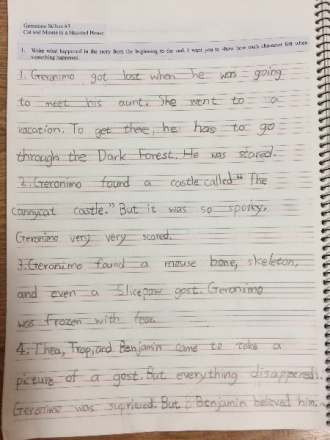 Geronimo Stilton #3
Cat and Mouse in a Haunted House
1. Write what happened in the story from the beginning to the end. I want you to show how each character felt when
something happened.
1. Geronimo got lost when he was going
to meet his aunt. She went to a
vacation. To get there, he has to go
through the Dark Forest. He was scared.
2. Geronimo found a castle called "The
cannycat castle." But it was so spooky.
Geronimo very very scared.
3. Geronimo found a mouse bone, skeleton,
and even a Slicepaw gost. Geronimo
was frozen with fear.
4. Thea, Trap, and Benjamin came to take a
picture of a gost. But everything disappeared.
Geronimo was suprised. But Benjamin believed him.